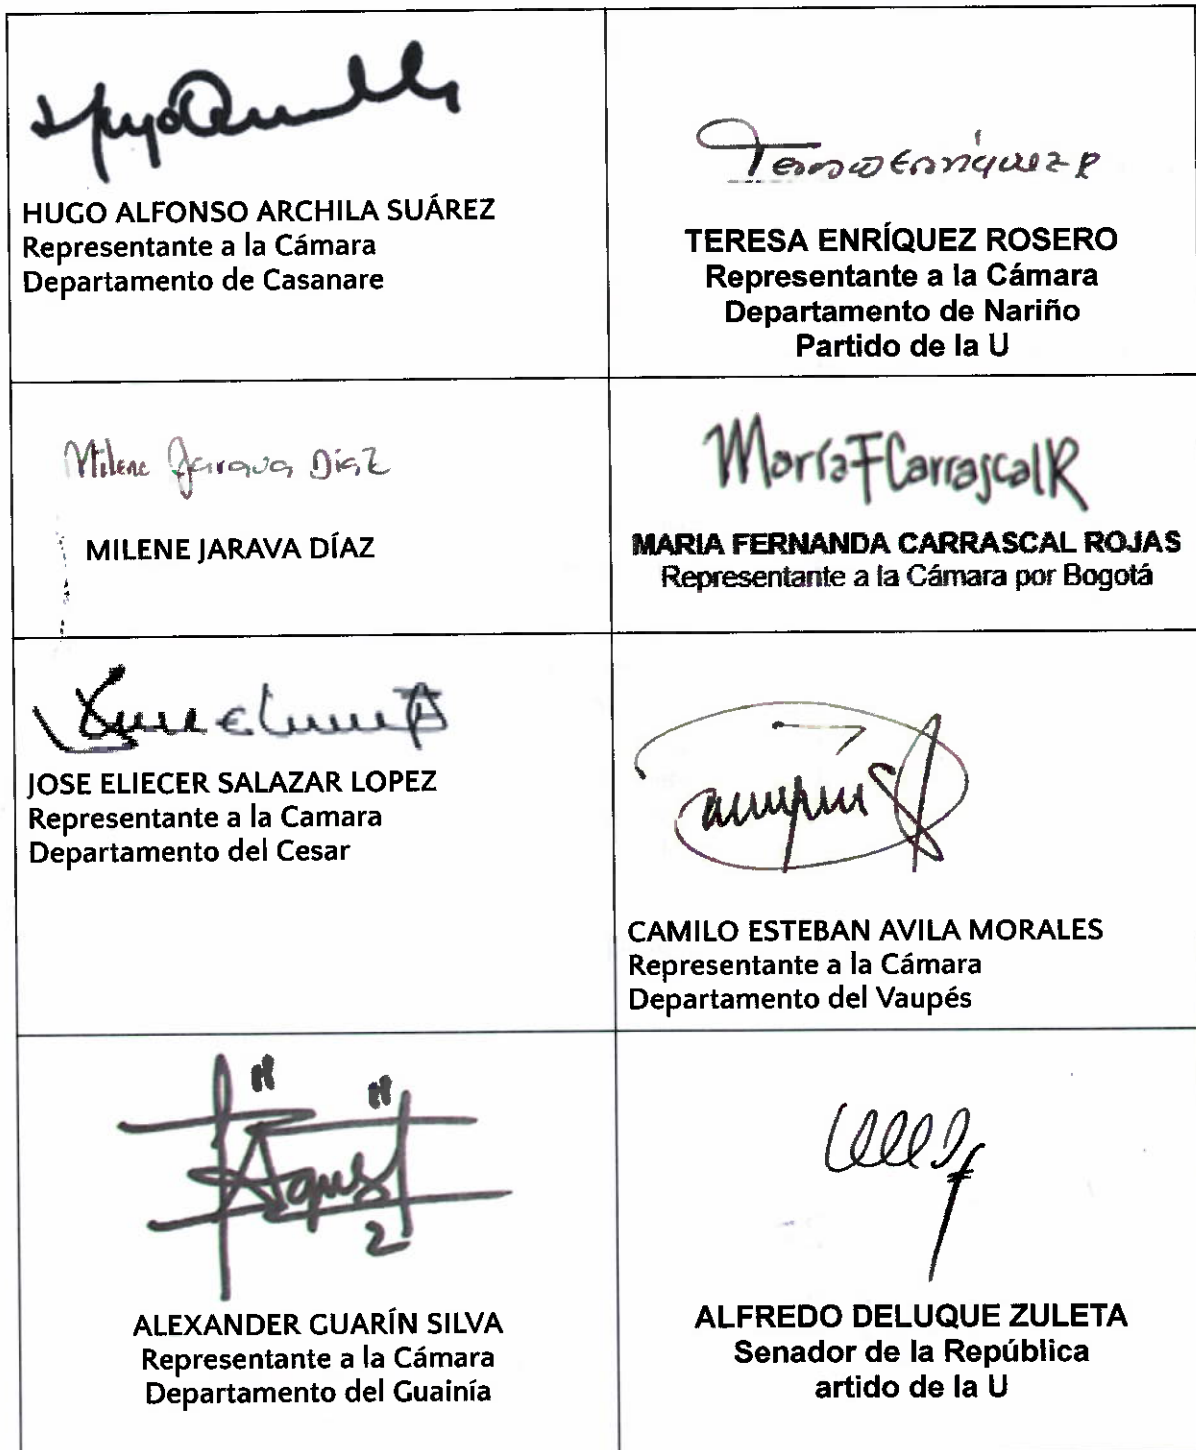 HUGO ALFONSO ARCHILA SUÁREZ
Representante a la Cámara
Departamento de Casanare
Teresa Enríquez R
TERESA ENRÍQUEZ ROSERO
Representante a la Cámara
Departamento de Nariño
Partido de la U
Milene Jarava Díaz
MILENE JARAVA DÍAZ
María F Carrascal R
MARIA FERNANDA CARRASCAL ROJAS
Representante a la Cámara por Bogotá
JOSE ELIECER SALAZAR LOPEZ
Representante a la Camara
Departamento del Cesar
CAMILO ESTEBAN AVILA MORALES
Representante a la Cámara
Departamento del Vaupés
ALEXANDER GUARÍN SILVA
Representante a la Cámara
Departamento del Guainía
ALFREDO DELUQUE ZULETA
Senador de la República
artido de la U